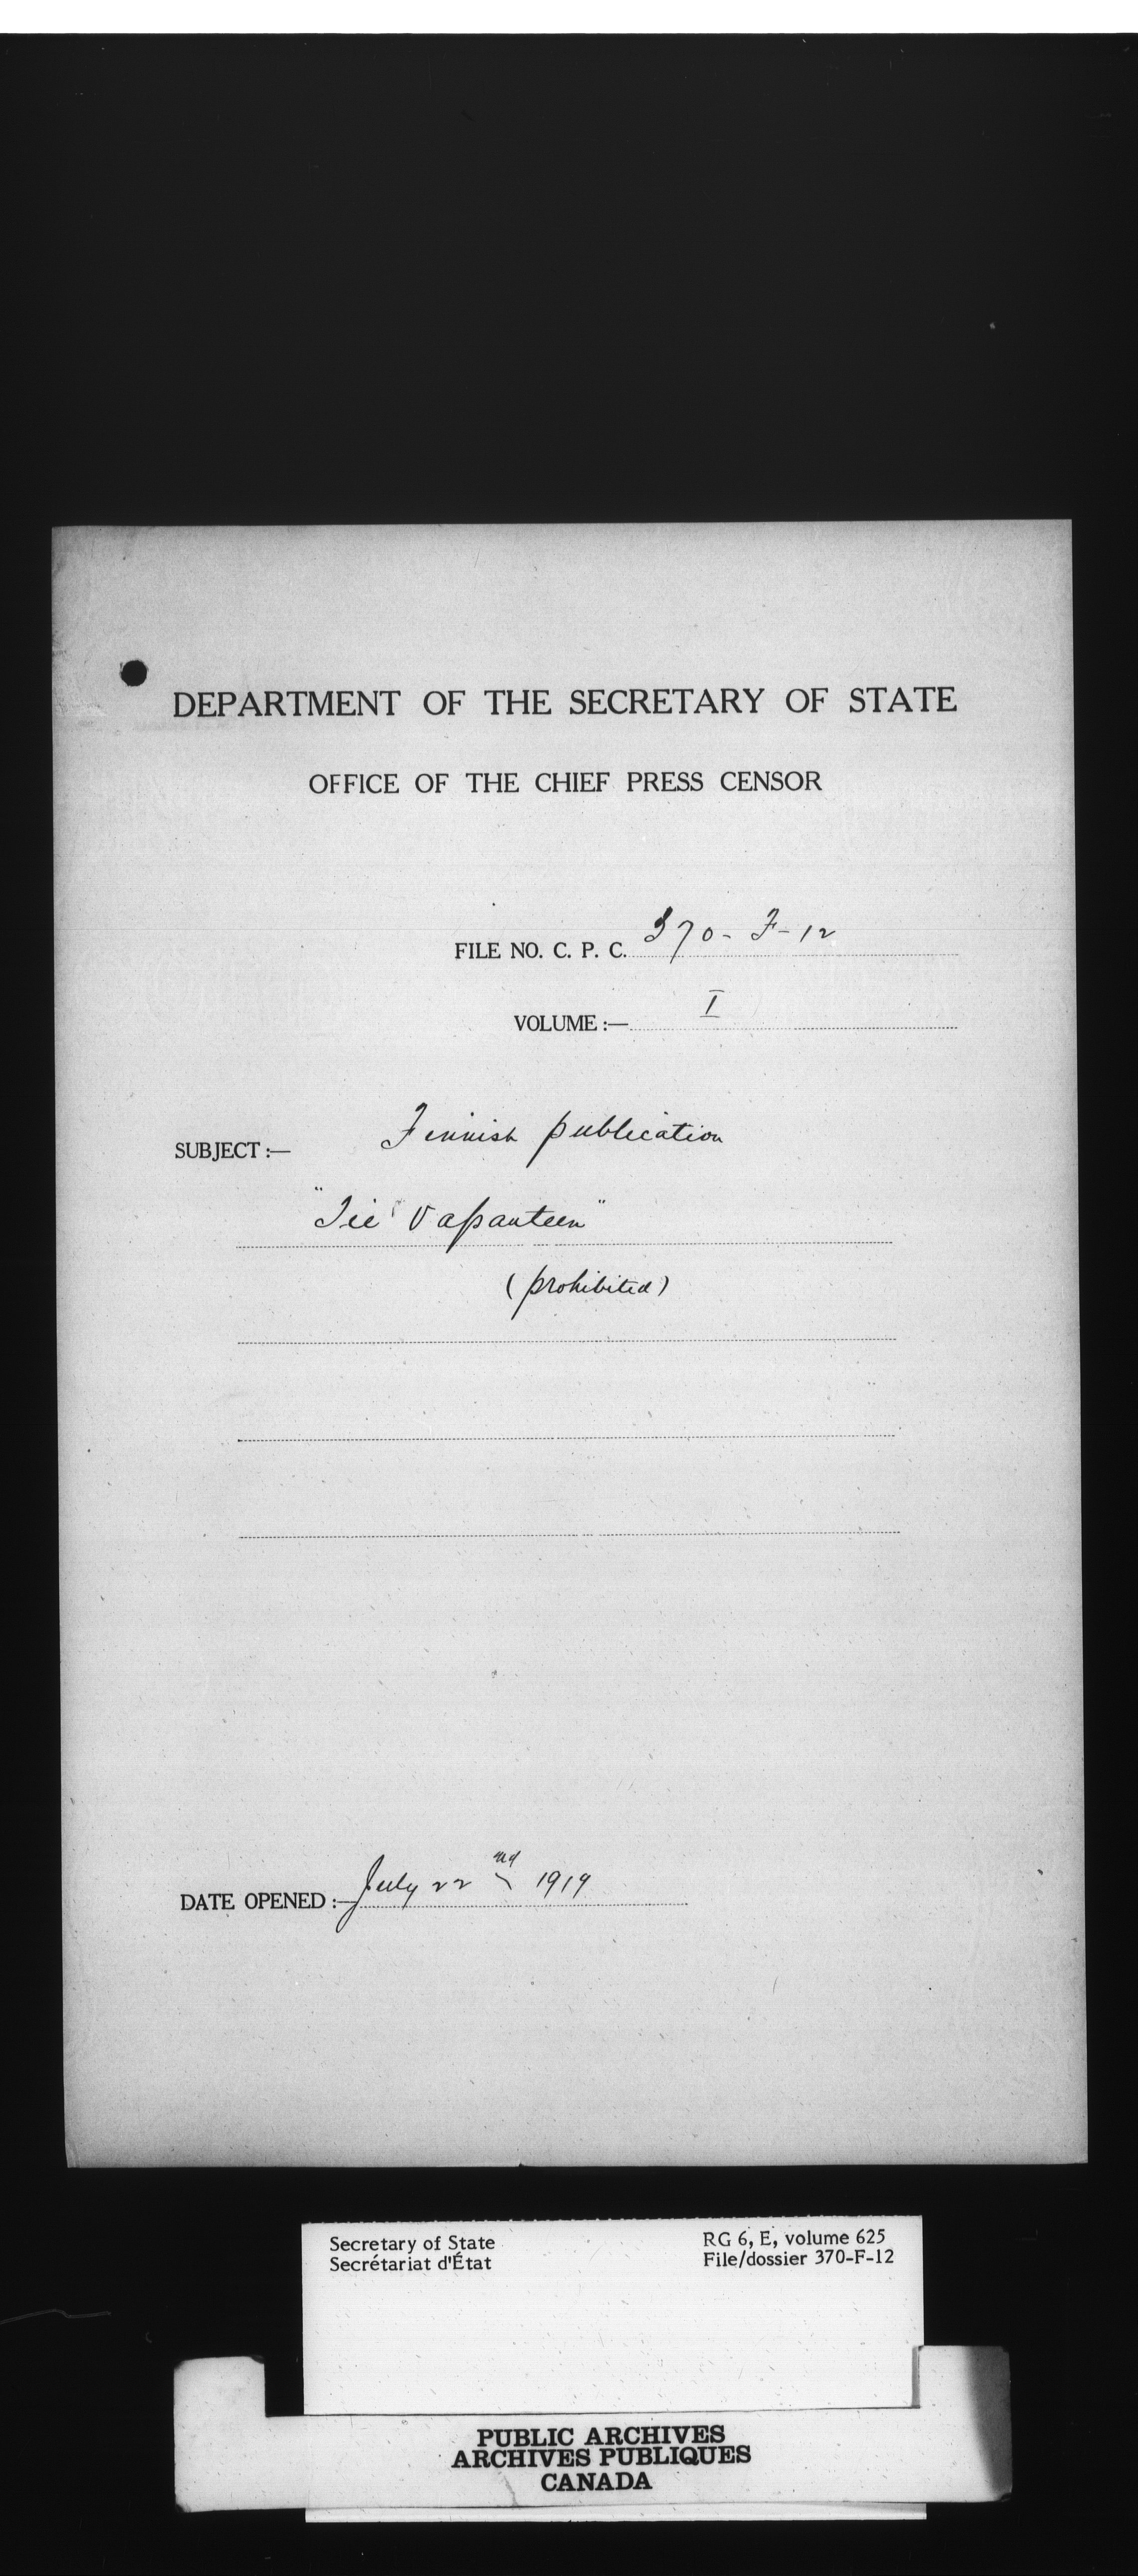 DEPARTMENT OF THE SECRETARY OF STATE
OFFICE OF THE CHIEF PRESS CENSOR
FILE NO. C. P. C. 370-F-12
VOLUME :— I
SUBJECT :— Finnish publication
"Tie Vapauteen"
(prohibited)
DATE OPENED :— July 22nd 1919
Secretary of State
Secrétariat d'État
RG 6, E, volume 625
File/dossier 370-F-12
PUBLIC ARCHIVES
ARCHIVES PUBLIQUES
CANADA